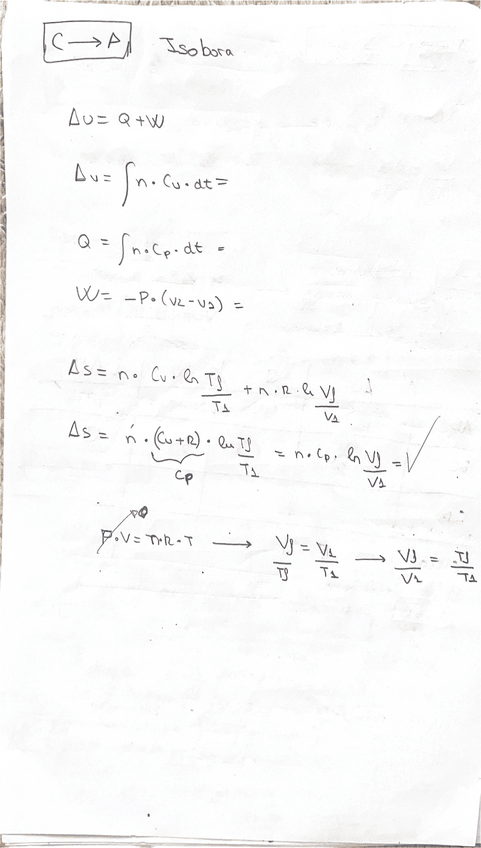 C → A Isobora
Δu = Q + W
Δu = ∫ n · Cv · dt =
Q = ∫ n · Cp · dt =
W = -P · (V2 - V1) =
ΔS = n · Cv · ln Tf/T1 + n · R · ln Vf/V1
ΔS = n · (Cv + R) · ln Tf/T1 = n · Cp · ln Vf/V1 =
Cp
P · V = n · R · T → Vf/Tf = V1/T1 → Vf/V1 = Tf/T1